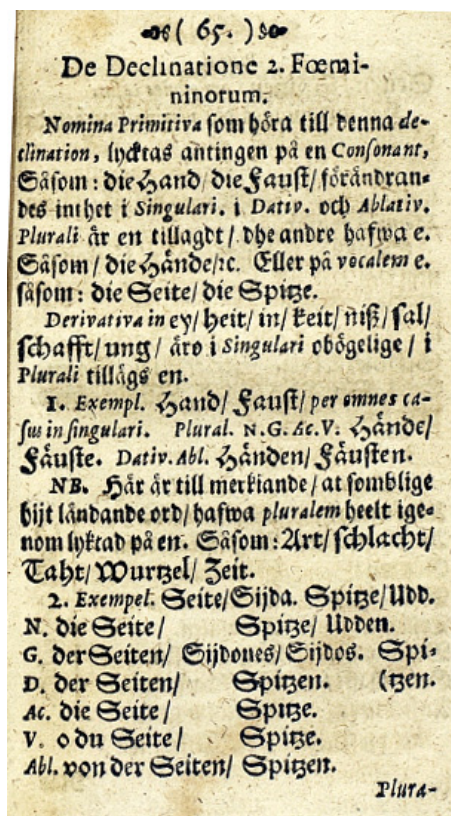 ( 65. )
De Declinatione 2. Fœmi-
ninorum.
Nomina Primitiva som höra till denna de-
clination, lycktas antingen på en Consonant,
Såsom: die Hand/ die Faust/ förändran-
des inthet i Singulari. i Dativ. och Ablativ.
Plurali är en tillagdt/ dhe andre hafwa e.
Såsom/ die Hände/ꝛc. Eller på vocalem e.
såsom: die Seite/ die Spitze.
Derivativa in ey/ heit/ in/ keit/ niß/ sal/
schafft/ ung/ äro i Singulari obögelige/ i
Plurali tillägs en.
1. Exempl. Hand/ Faust/ per omnes ca-
sus in singulari. Plural. N.G.Ac.V. Hände/
Fäuste. Dativ. Abl. Händen/ Fäusten.
NB. Här är till merkiande/ at somblige
hijt ländande ord/ hafwa pluralem heelt ige-
nom lyktad på en. Såsom: Art/ schlacht/
Taht/ Wurtzel/ Zeit.
2. Exempel. Seite/Sijda. Spitze/Udd.
N. die Seite/ Spitze/ Udden.
G. der Seiten/ Sijdones/ Sijdos. Spi-
D. der Seiten/ Spitzen. (tzen.
Ac. die Seite/ Spitze.
V. o du Seite/ Spitze.
Abl. von der Seiten/ Spitzen.
Plura-